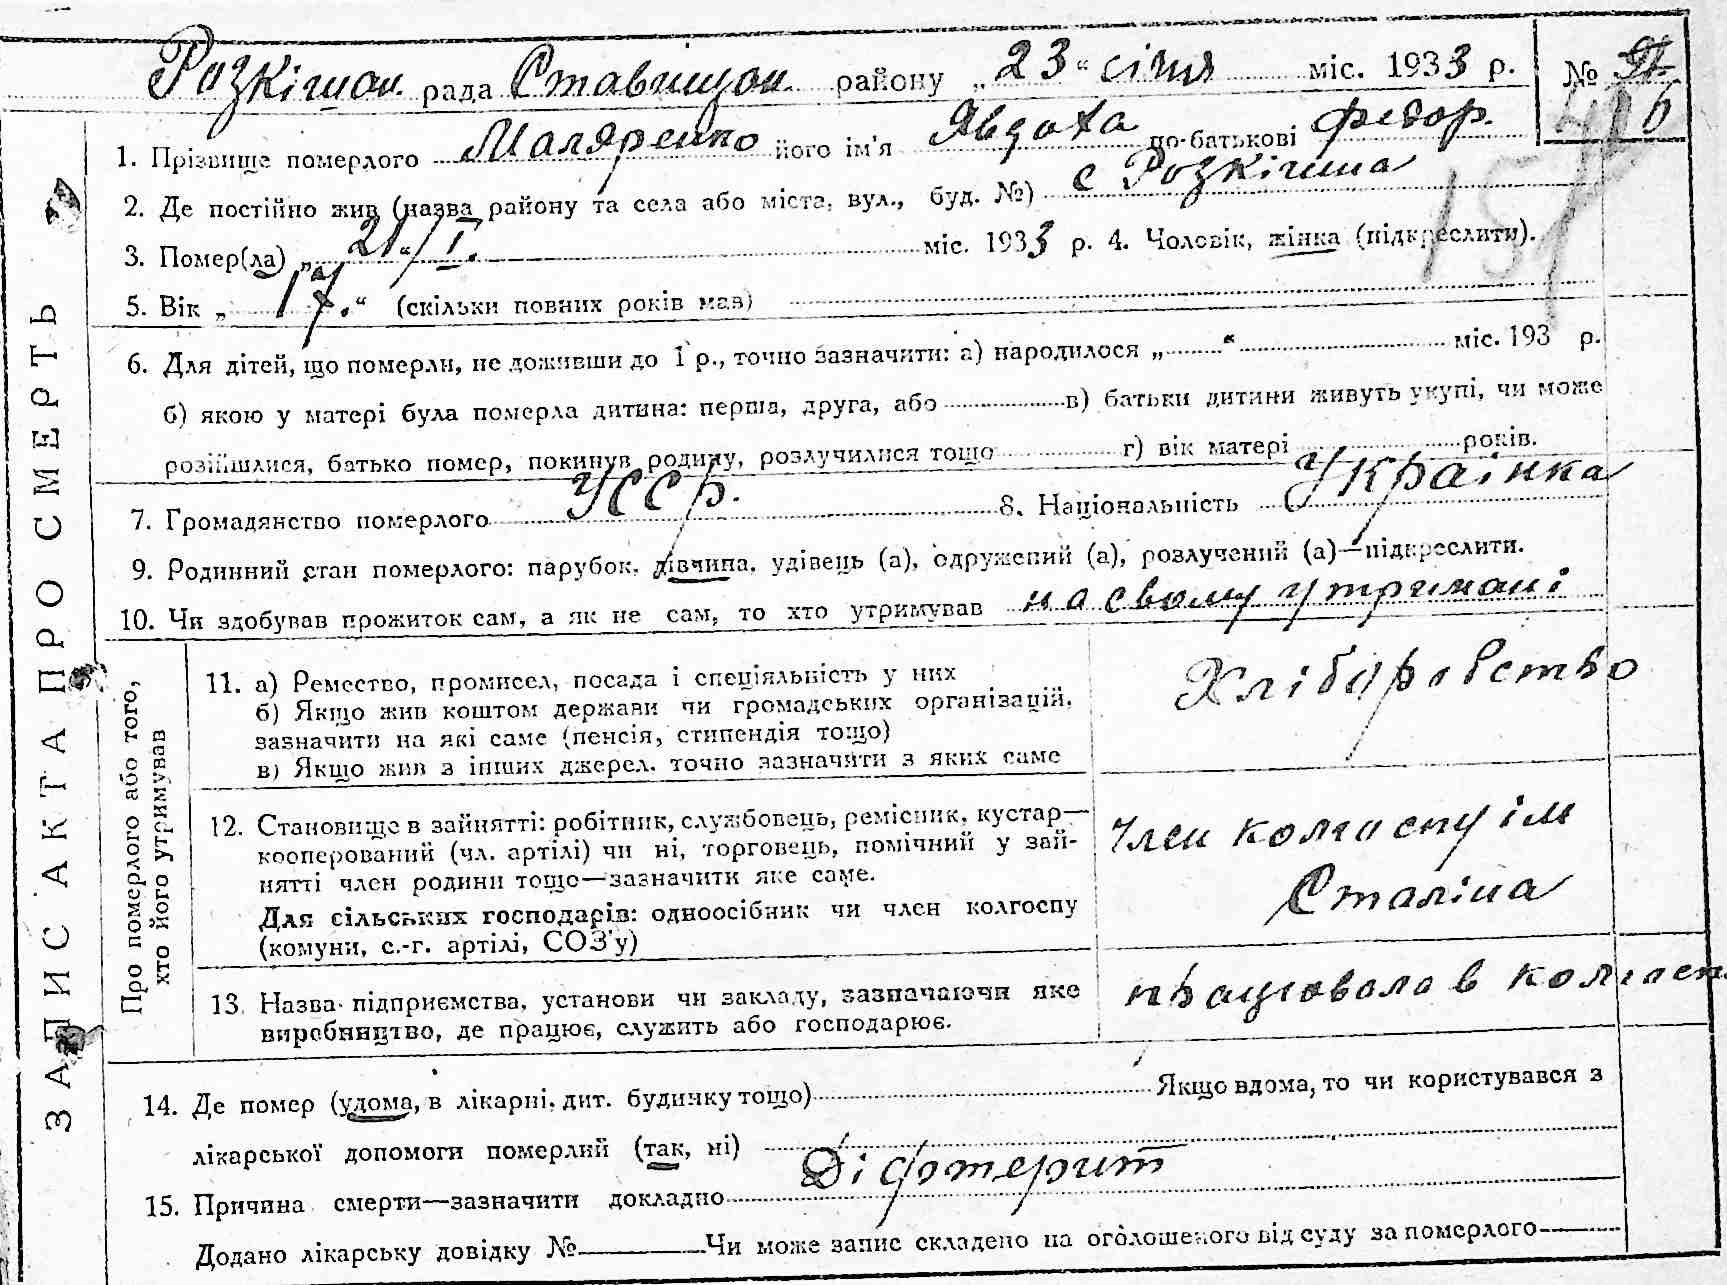 Розкішан. рада Ставищан. району „23" січня міс. 1933 р. №
6
1. Прізвище померлого Маляренко його ім'я Явдоха по-батькові Федор.
2. Де постійно жив (назва району та села або міста, вул., буд. №) с Розкішна
3. Помер(ла) „21"/I. міс. 1933 р. 4. Чоловік, жінка (підкреслити).
5. Вік „17." (скільки повних років мав)
6. Для дітей, що померли, не доживши до 1 р., точно зазначити: а) народилося „ " міс. 193 р.
б) якою у матері була померла дитина: перша, друга, або в) батьки дитини живуть укупі, чи може
розійшлися, батько помер, покинув родину, розлучилися тощо г) вік матері років.
7. Громадянство померлого УССР. 8. Національність Українка
9. Родинний стан померлого: парубок, дівчина, удівець (а), одружений (а), розлучений (а)—підкреслити.
10. Чи здобував прожиток сам, а як не сам, то хто утримував на своему утримані
ЗАПИС АКТА ПРО СМЕРТЬ
Про померлого або того,
хто його утримував
11. а) Ремество, промисел, посада і спеціяльність у них
б) Якщо жив коштом держави чи громадських організацій,
зазначити на які саме (пенсія, стипендія тощо)
в) Якщо жив з інших джерел, точно зазначити з яких саме
Хліборобство
12. Становище в зайнятті: робітник, службовець, ремісник, кустар—
кооперований (чл. артілі) чи ні, торговець, помічний у зай-
нятті член родини тощо—зазначити яке саме.
Для сільських господарів: одноосібник чи член колгоспу
(комуни, с.-г. артілі, СОЗ'у)
Член колгоспу ім
Сталіна
13. Назва підприємства, установи чи закладу, зазначаючи яке
виробництво, де працює, служить або господарює.
працювала в колгосп.
14. Де помер (удома, в лікарні, дит. будинку тощо) Якщо вдома, то чи користувався з
лікарської допомоги померлий (так, ні)
15. Причина смерти—зазначити докладно Діфтерит
Додано лікарську довідку № Чи може запис складено на оголошеного від суду за померлого